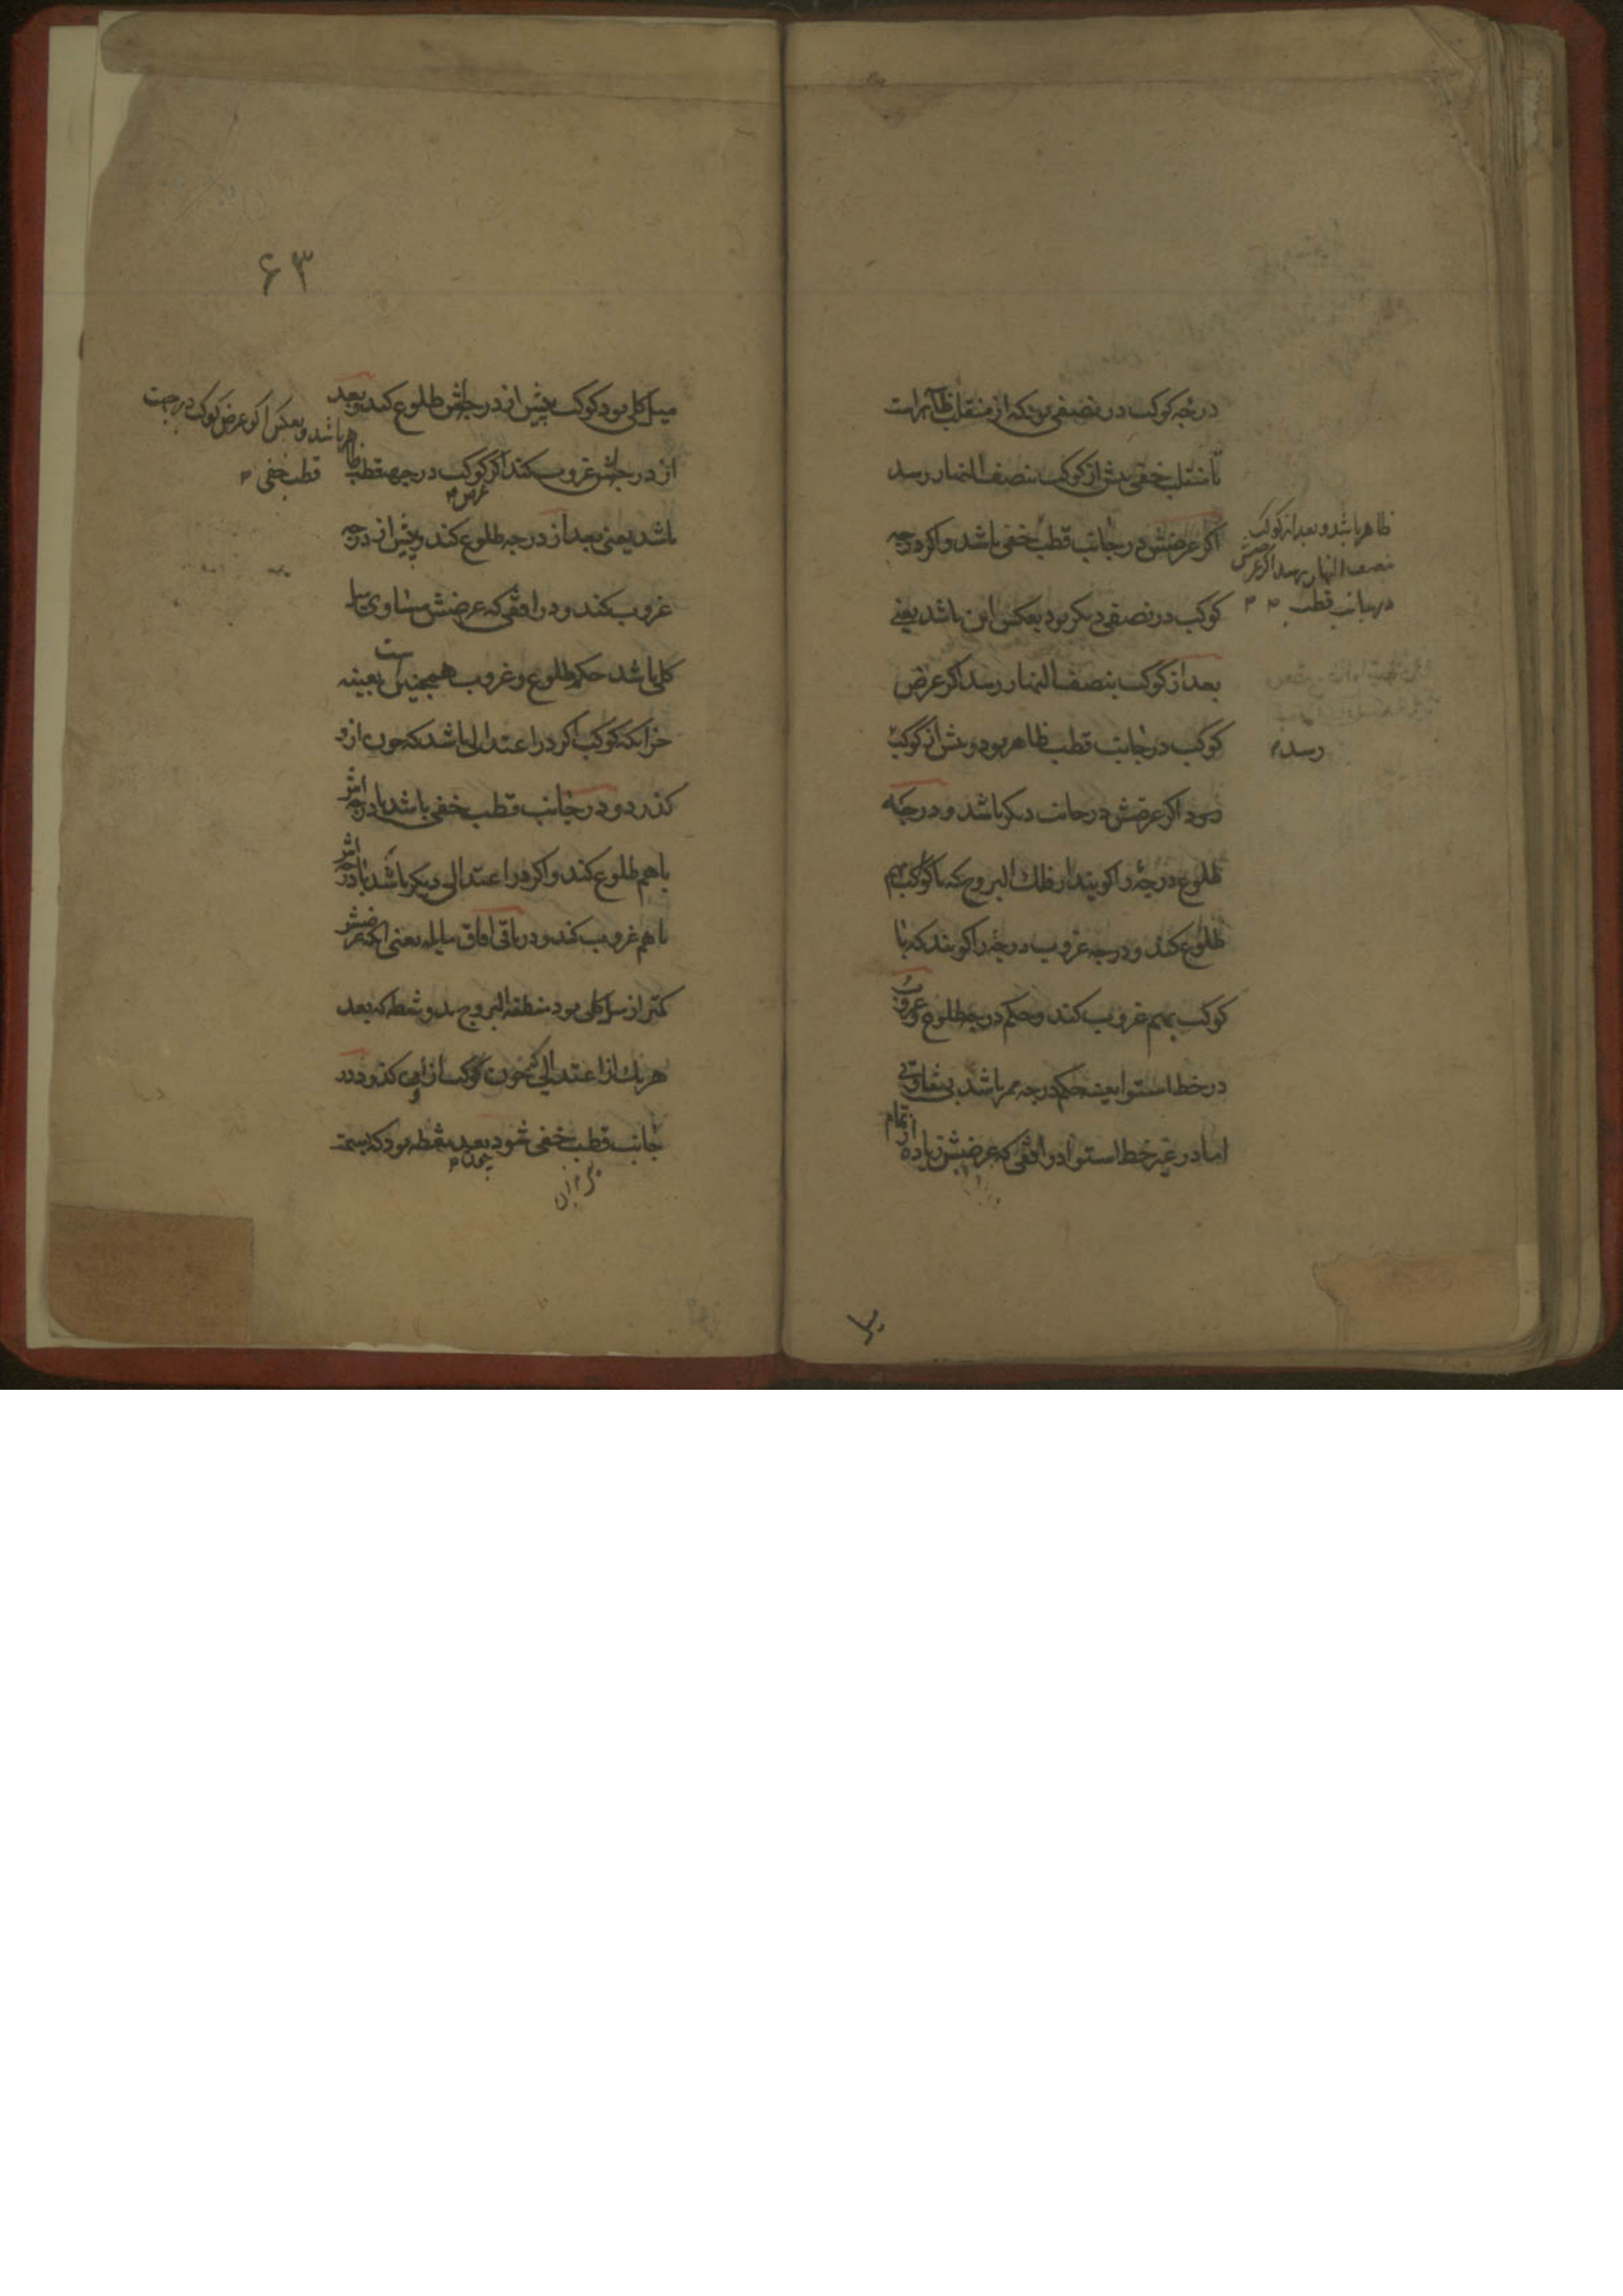 درجه کوکب در نصفی بود که از منقلب ظاهرست
تا منقلب خفی پیش از کوکب بنصف النهار رسد
اگر عرضش در جانب قطب خفی باشد و اگر درجه
کوکب در نصفی دیگر بود بعکس این باشد یعنی
بعد از کوکب بنصف النهار رسد اگر عرض
کوکب در جانب قطب ظاهر بود و پیش از کوکب
رسد اگر عرضش در جانب دیگر باشد و درجه
طلوع درجهٔ را گویند از فلك البروج که با کوکب بهم
طلوع کند و درجه غروب درجه را گویند که با
کوکب بهم غروب کند و حکم درجه طلوع و غروب
در خط استوا بعینه حکم درجه ممر باشد بی تفاوتی
اما در غیر خط استوا در افقی که عرضش زیاده از تمام
ظاهر باشد و بعد از کوکب
بنصف النهار رسد اگر عرضش
در جانب قطب
رسد
۶۳
میل کلی بود کوکب پیش از درجه اش طلوع کند و بعد
از درجه اش غروب کند اگر کوکب در جهة قطب ظا
باشد یعنی بعد از درجه طلوع کند و پیش از درجه
غروب کند و در افقی که عرضش مساوی میل
کلی باشد حکم طلوع و غروب همچنین است بعینه
جز آنکه کوکب اگر در اعتدالی باشد که چون ازو
کذرد و در جانب قطب خفی باشد با درجه اش
با هم طلوع کند و اگر در اعتدالی دیگر باشد با درجه اش
با هم غروب کند و در باقی افاق مایله یعنی آنکه عرضش
کمتر از میل کلی بود منطقه البروج بدو نقطه که بعد
هر یك از اعتدالی که چون کوکب از وی کذرد در
جانب قطب خفی شود بعد نقطه بود که بسمت
هر باشد و بعکس اگر عرض کوکب در جهت
قطب خفی
عرض
چون